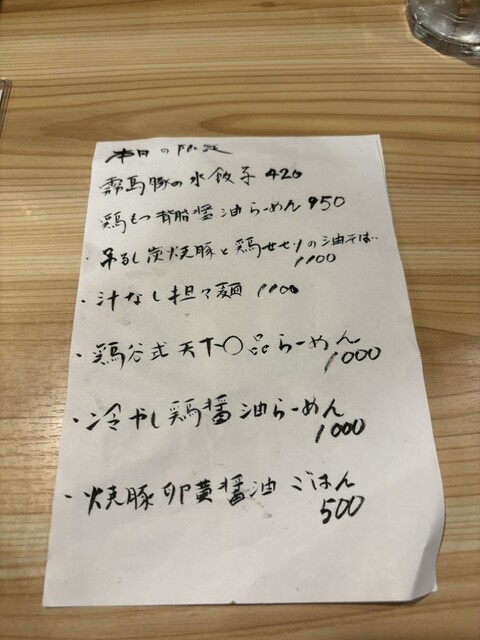 本日の限定
霧島豚の水餃子 420
鶏もつ背脂醤油らーめん 950
・吊るし炭焼豚と鶏せせりの油そば
1100
・汁なし担々麺 1100
・鶏谷式天下〇品らーめん
1000
・冷やし鶏醤油らーめん
1000
・焼豚卵黄醤油ごはん
500